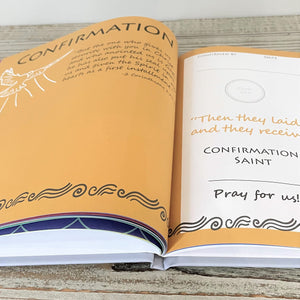 CONFIRMATION
But the one who gives us
security with you in Christ
and who anointed us is God;
he has also put his seal upon
us and given the Spirit in our
hearts as a first installment.
2 Corinthians
CONFIRMED BY DATE
"Then they laid
and they receive
CONFIRMATION
SAINT
Pray for us!